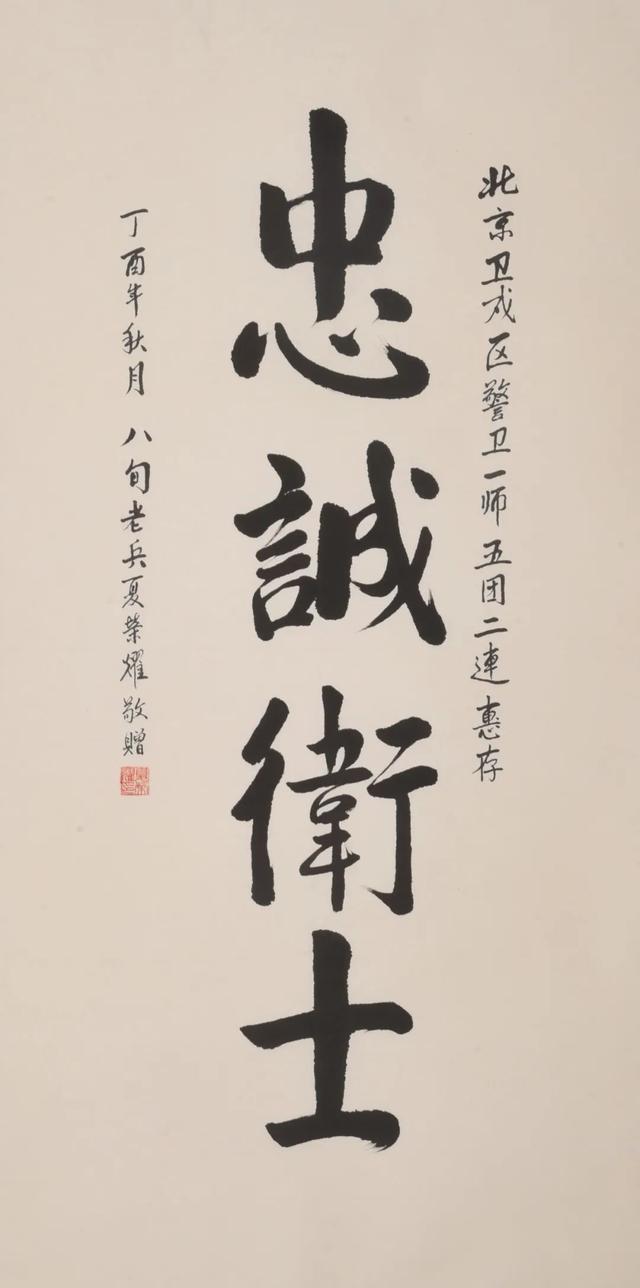 北京卫戍区警卫一师五团二連惠存
忠誠衛士
丁酉年秋月 八旬老兵夏荣耀敬赠